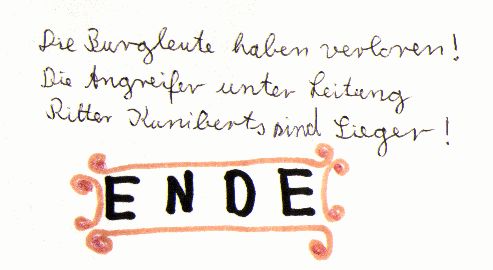 Die Burgleute haben verloren!
Die Angreifer unter Leitung
Ritter Kuniberts sind Sieger!
ENDE